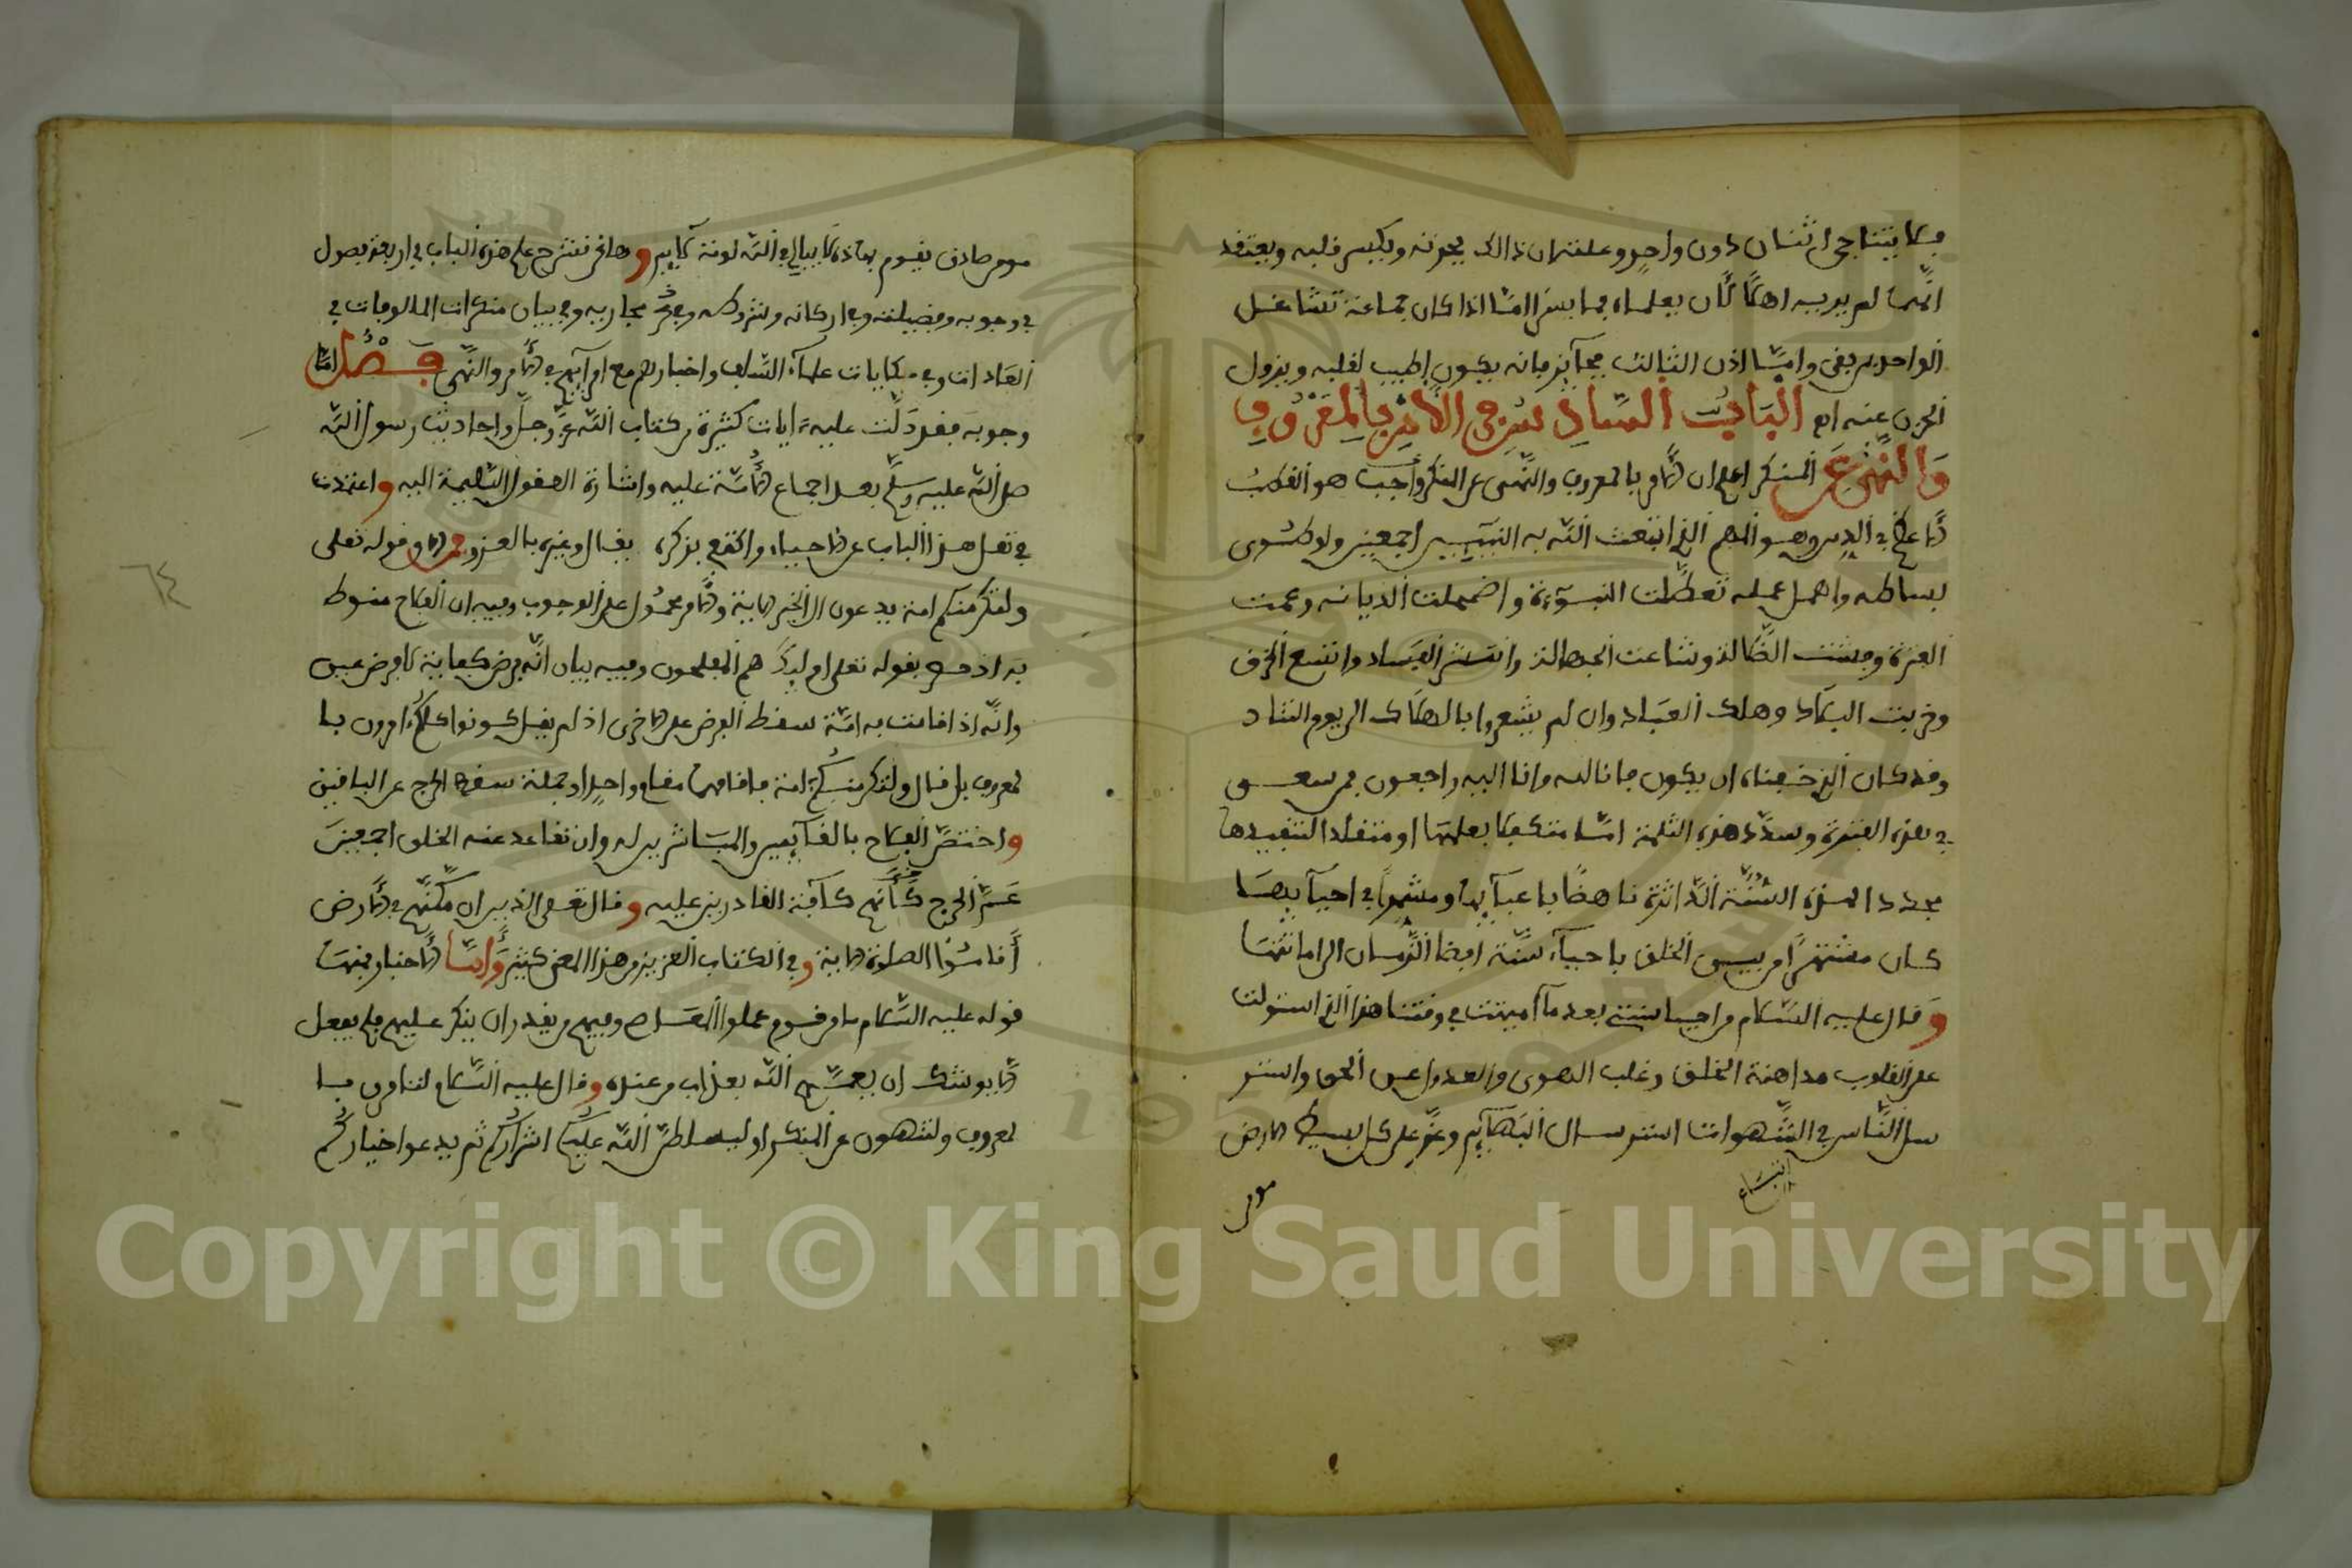 فلا يتناجى اثنان دون واحد وعلته ان ذالك يحزنه ويكسر قلبه ويعتقد
انهما لم يريداه اهلا لان يعلماه بما اذا كان جماعة تشاغل
الواحد بمن بقى واما اذن الثالث بجائز فانه يكون اطيب لقلبه ويزول
الحزن عنه اه الباب السادس في الامر بالمعروف
والنهي عن المنكر اعلم ان الامر بالمعروف والنهى عن المنكر واجب هو القطب
الاعظم في الدين وهو المهم الذي ابتعث الله به النبيين اجمعين ولو طوى
بساطه واهمل عمله تعطلت النبوءة واضمحلت الديانه وعمت
الفترة وفشت الضلالة وشاعت الجهالة وانتشر الفساد واتسع الخرق
وخربت البلاد وهلك العباد وان لم يشعروا بالهلاك الى يوم التناد
وقد كان الذي خفناه ان يكون فانا لله وانا اليه راجعون فمن سعى
في هذه الفترة وسدد هذه الثلمة اما متكفلا بعلمها او متقلدا لتنفيذها
مجددا لهذه السنة الداثرة ناهضا باعبائها ومشمرا في احيائها
كان مشتهرا من بين الخلق باحياء سنة افضا الزمان الى اماتتها
وقال عليه السلام من احيا سنتي بعد ما اميتت في وقتنا هذا الذي استولت
على القلوب مداهنة الخلق وغلب الهوى والعدوا عن الحق واستر
سل الناس في الشهوات استرسال البهائم وعز على كل بسيط الارض
اتباع
مومن
مومن صادق يقوم بهاذه لا يبالي في الله لومة لائم وها نحن نشرح على هذه الباب في اربعة فصول
في وجوبه وفضيلته وفي اركانه وشروطه وفي مجاريه وفي بيان منكرات المالوفات في
العادات وفي حكايات علماء السلف واخبارهم مع امرائهم في الامر والنهى فصل اما
وجوبه فقد دلت عليه ايات كثيرة من كتاب الله عز وجل واحاديث رسول الله
صل الله عليه وسلم بعد اجماع الامة عليه واشارة العقول السليمة اليه واعتمدت
في نقل هذا الباب عن الاحياء واكتفي بذكره فقال وغيره بالعزو فمن الاي قوله تعلى
ولتكن منكم امة يدعون الى الخير الاية والامر محمول على الوجوب وفيه ان الفلاح منوط
به اذ حصر بقوله تعلى اوليك هم المفلحون وفيه بيان انه فرض كفاية لا فرض عين
وانه اذا قامت به امة سقط الفرض على الاخرى اذ لم يقل كونوا كلكم امرون با
لمعروف بل قال ولتكن منكم امة فاذا قام بها مقام واحد او جملة سقط الحرج عن الباقين
واختص الفلاح بالقائمين والمباشرين له وان تقاعد عنه الخلق اجمعين
عم الحرج كافة القادرين عليه وقال تعلى الذين ان مكنهم في الارض
أقاموا الصلوة الاية وفي الكتاب العزيز من هذا المعنى كثير وأما الاخبار فمنها
قوله عليه السلام ما من قوم عملوا المعاصي وفيهم من يقدر ان ينكر عليهم فلم يفعل
الا يوشك ان يعمهم الله بعذاب من عنده وقال عليه السلام لتامرن با
لمعروف ولتنهون عن المنكر او ليسلطن الله عليكم اشراركم ثم يدعوا خياركم
٦٤
Copyright © King Saud University
1957